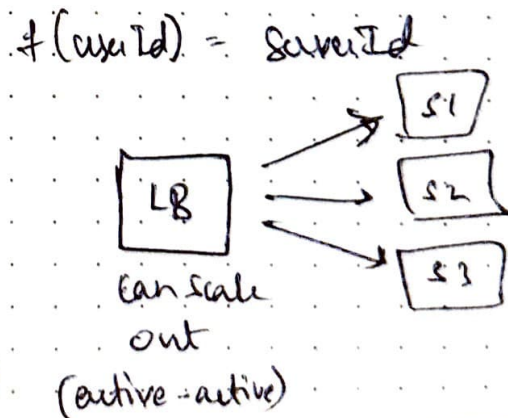 f(userId) = serverId
S1
LB
S2
S3
can scale
out
(active-active)